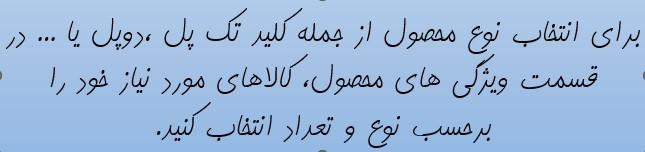 برای انتخاب نوع محصول از جمله کلید تک پل ،دوپل یا ... در
قسمت ویژگی های محصول، کالاهای مورد نیاز خود را
برحسب نوع و تعداد انتخاب کنید.